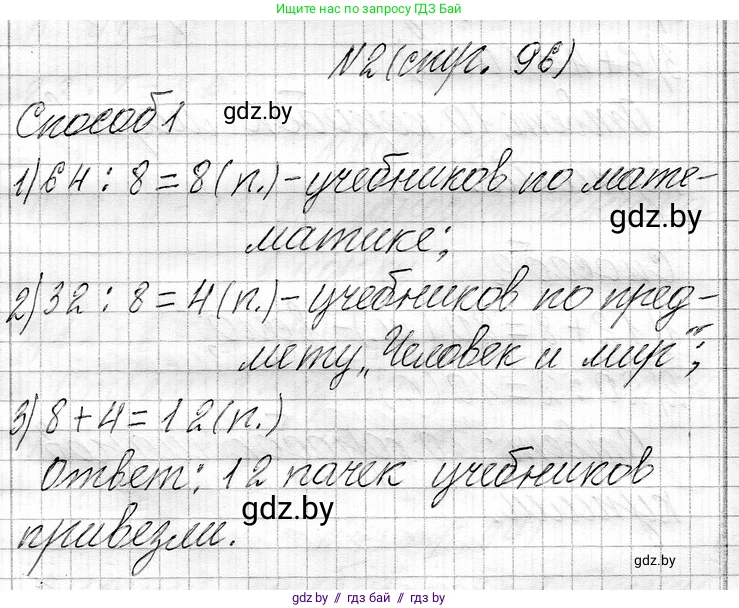 Пришли решение по запросу ГДЗ Бай
№2 (стр. 96)
Способ 1 gdz.by
1) 64 : 8 = 8 (п.) – учебников по мате-
gdz.by
матике;
2) 32 : 8 = 4 (п.) – учебников по пред-
мету „Человек и мир";
3) 8 + 4 = 12 (п.)
Ответ: 12 пачек учебников
gdz.by
привезли.
gdz.by
gdz.by // гдз бай // gdz.by